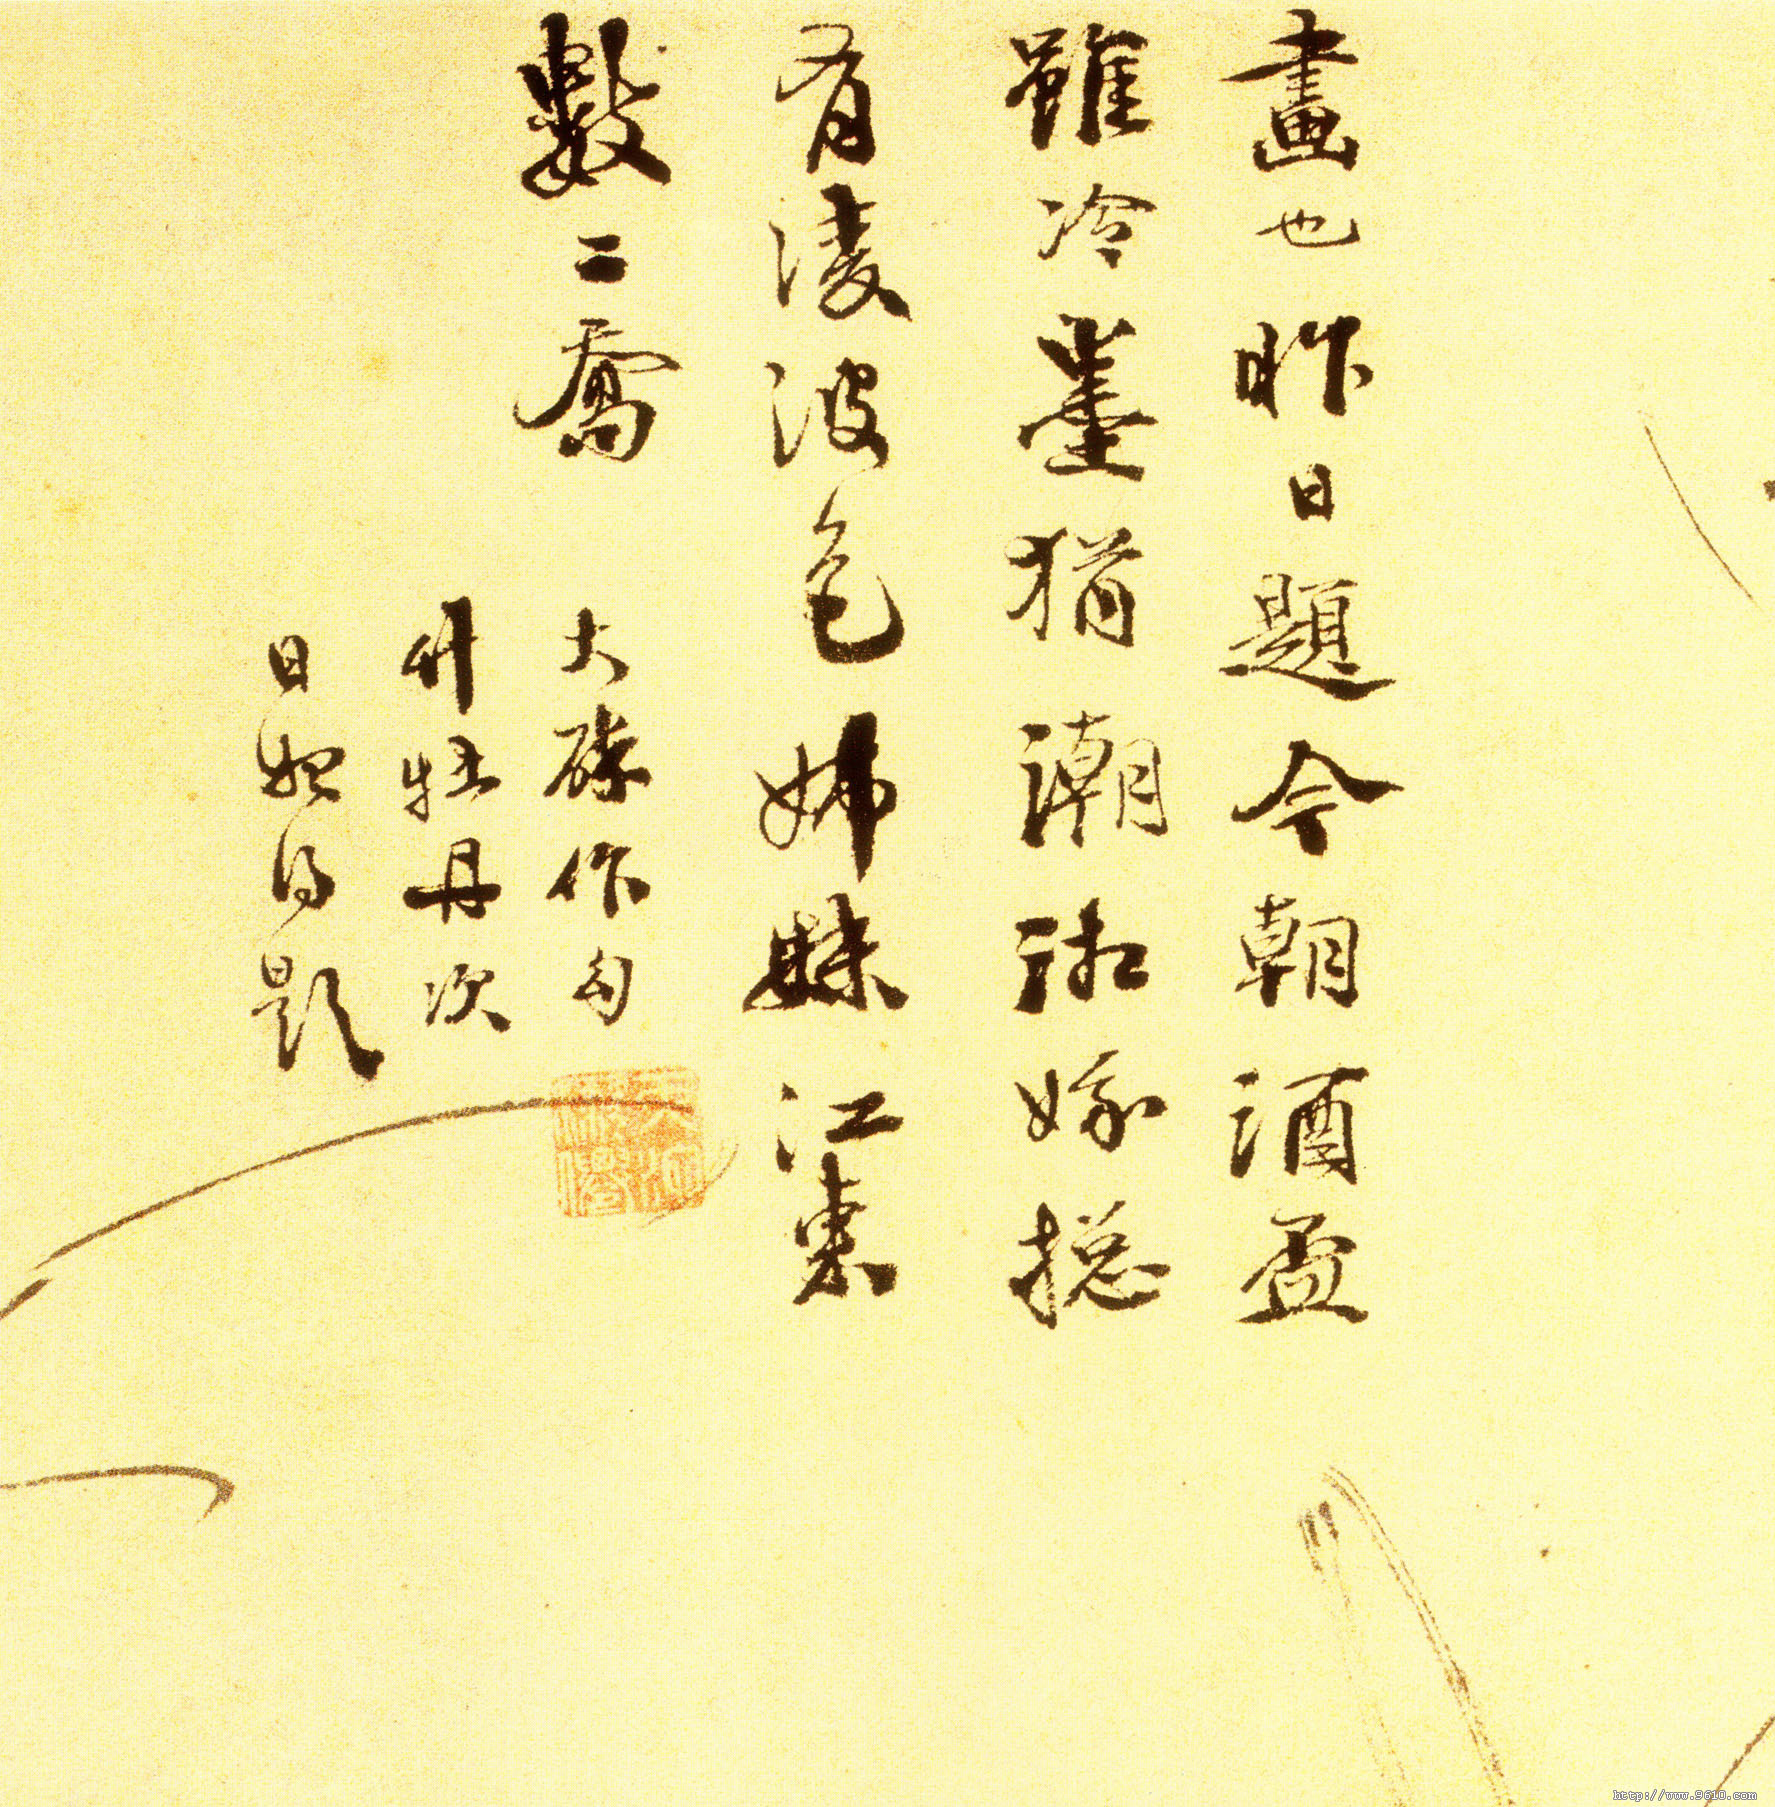 畫也昨日題今朝酒盃
雖冷墨猶潮湘娥總
有淩波色姊妹江東
數二喬
大滌作勾
竹牡丹次
日想得題
http://www.9610.com